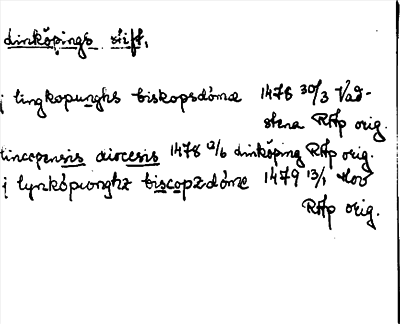 Linköpings stift,
j lingkopunghs biskopsdömæ 1478 30/3 Vad-
stena RAp orig.
lincopensis diocesis 1478 12/6 Linköping RAp orig.
j lynköpwonghz biscopzdöme 1479 13/1 Hov
RAp orig.